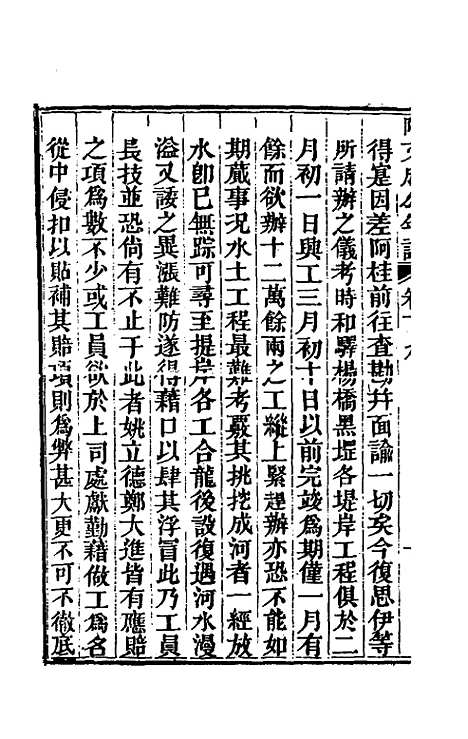 阿文成公年譜 卷十九
得寔因差阿桂前往查勘幷面諭一切矣今復思伊等
所請辦之儀考時和驛楊橋黑堽各堤岸工程俱於二
月初一日興工三月初十日以前完竣為期僅一月有
餘而欲辦十二萬餘兩之工縱上緊趕辦亦恐不能如
期蕆事況水土工程最難考覈其挑挖成河者一經放
水卽已無踪可尋至提岸各工合龍後設復遇河水漫
溢又諉之異漲難防遂得藉口以肆其浮冒此乃工員
長技並恐尙有不止于此者姚立德鄭大進皆有應賠
之項為數不少或工員欲於上司處獻勤藉做工為名
從中侵扣以貼補其賠項則為弊甚大更不可不徹底